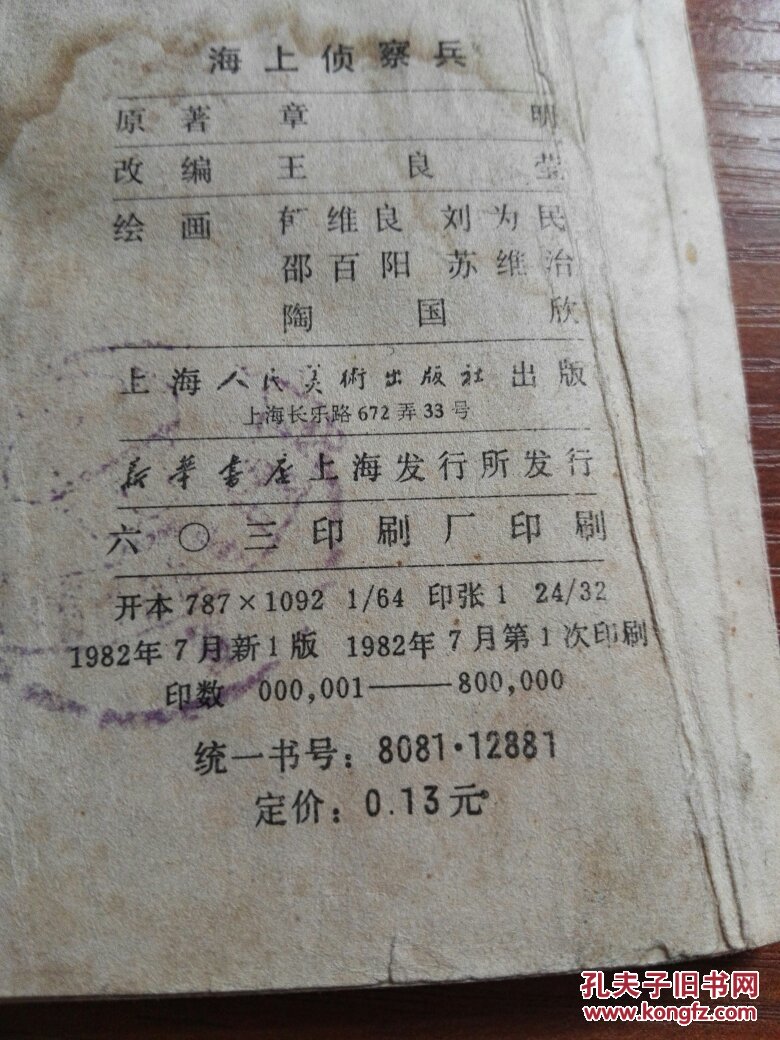 海上侦察兵
原著 章 明
改编 王良莹
绘画 维良 刘为民
邵百阳 苏维治
陶国欣
上海人民美術出版社出版
上海长乐路672弄33号
新華書店上海发行所发行
六〇三印刷厂印刷
开本 787×1092 1/64 印张 1 24/32
1982年7月新1版 1982年7月第1次印刷
印数 000,001——800,000
统一书号：8081·12881
定价：0.13元
孔夫子旧书网
www.kongfz.com